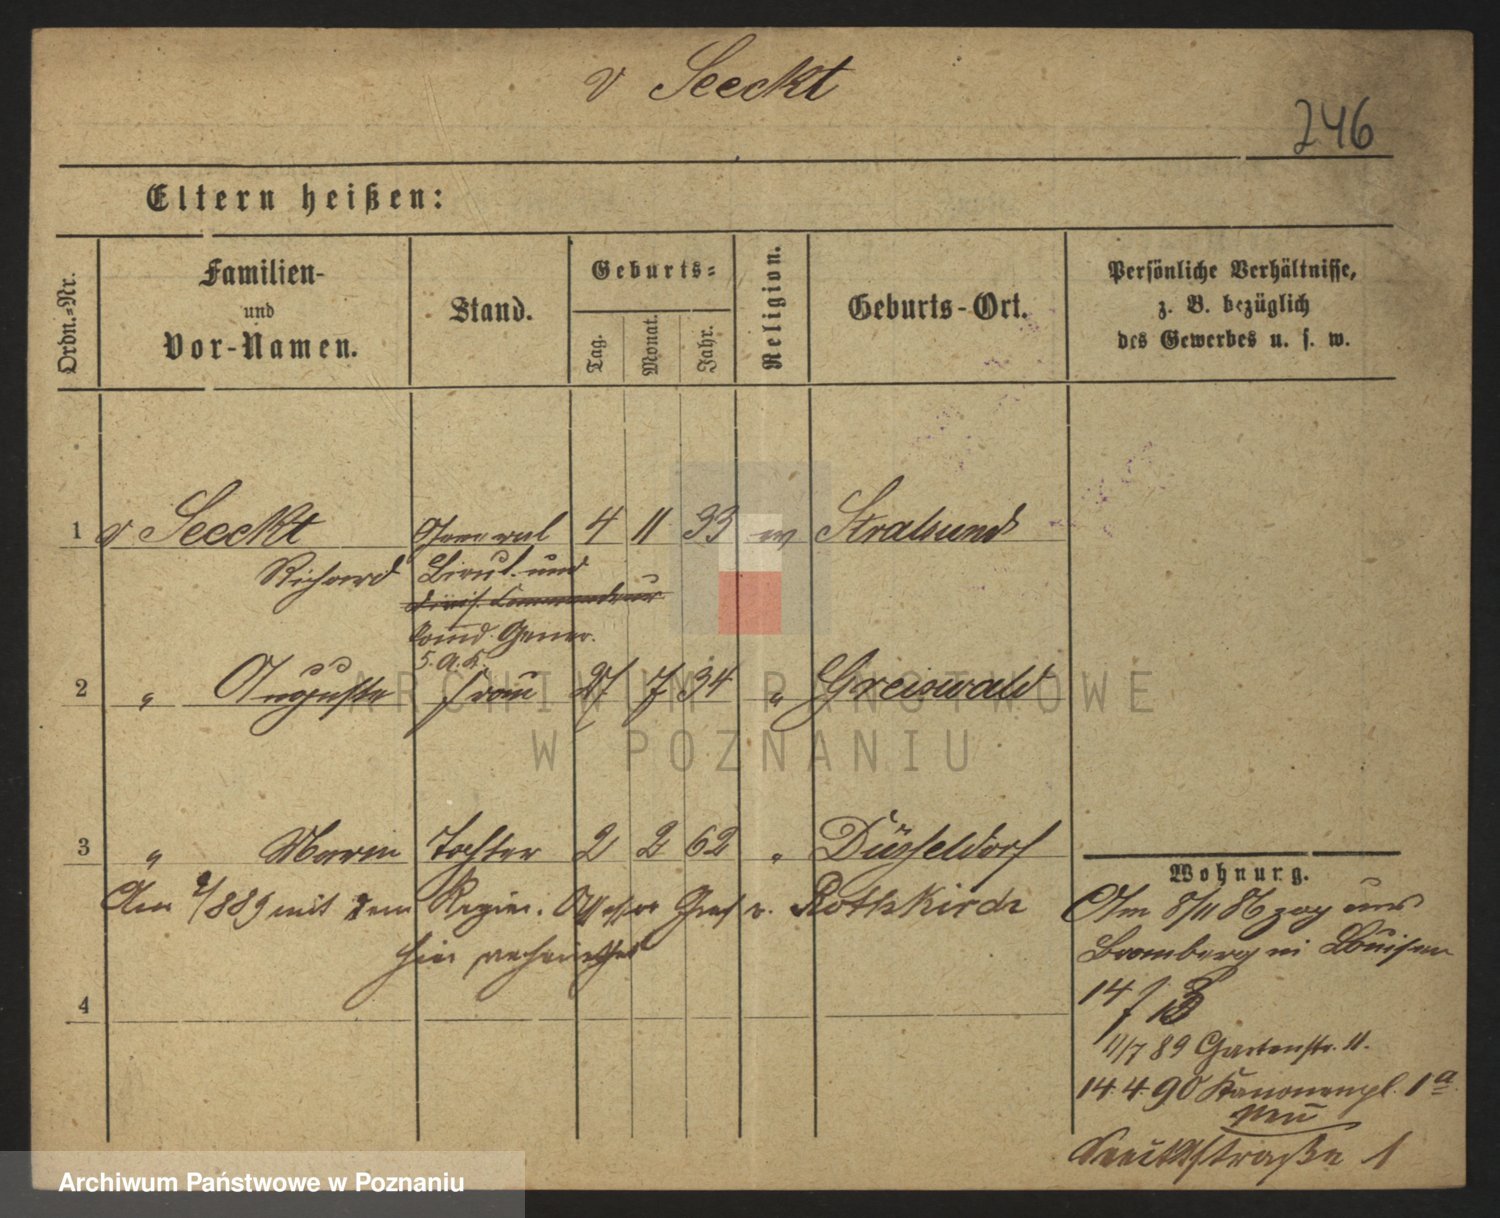 v Seeckt
246
Eltern heißen:
Ordn.=Nr.
Familien-
und
Vor-Namen.
Stand.
Geburts=
Tag.
Monat.
Jahr.
Religion.
Geburts-Ort.
Persönliche Verhältnisse,
z. B. bezüglich
des Gewerbes u. s. w.
1 v Seeckt General 4 11 33 ev Stralsund
Richard Lieut. und
Divis. Commandeur
Comd. Gener.
5. A. K.
2 " Auguste Frau 27 7 34 " Greiswald
ARCHIWUM PAŃSTWOWE
W POZNANIU
3 " Marie Tochter 2 2 62 " Düsseldorf
Am /889 mit dem Regier. Assessor Graf v. Rothkirch
hier verheirathet
4
Wohnung.
Am 8/11 86 zog aus
Bromberg in Louisen
14
11/7 89 Gartenstr. 11.
14. 4. 90 Kanonenpl. 1a
neu
Seecktstraße 1
Archiwum Państwowe w Poznaniu